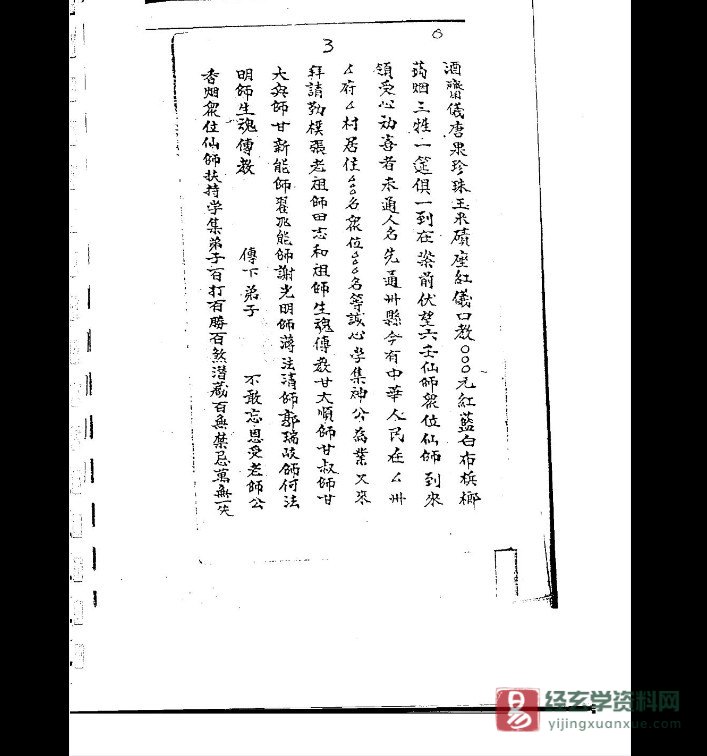 6
3
酒齋儀唐果珍珠玉米磧座紅儀口教〇〇〇元紅藍白布梹榔
蒟烟三牲一筵俱一到在案前伏望六壬仙師眾位仙師到來
領受心动喜者未通人名先通卅縣今有中華人民在厶卅
厶府厶村居住厶厶名眾位厶厶名等誠心学集神公為業又來
拜請勤樸張老祖師田志和祖師生魂傳教甘大順師甘叔師甘
大兵師甘新能師羅飛能師謝光明師蔣法清師郭瑞政師何法
明師生魂傳教 傳下弟子 不敢忘恩受老師公
香烟眾位仙師扶持学集弟子百打百勝百煞潛藏百無禁忌萬無一失
易
经玄学资料网
yijingxuanxue.com